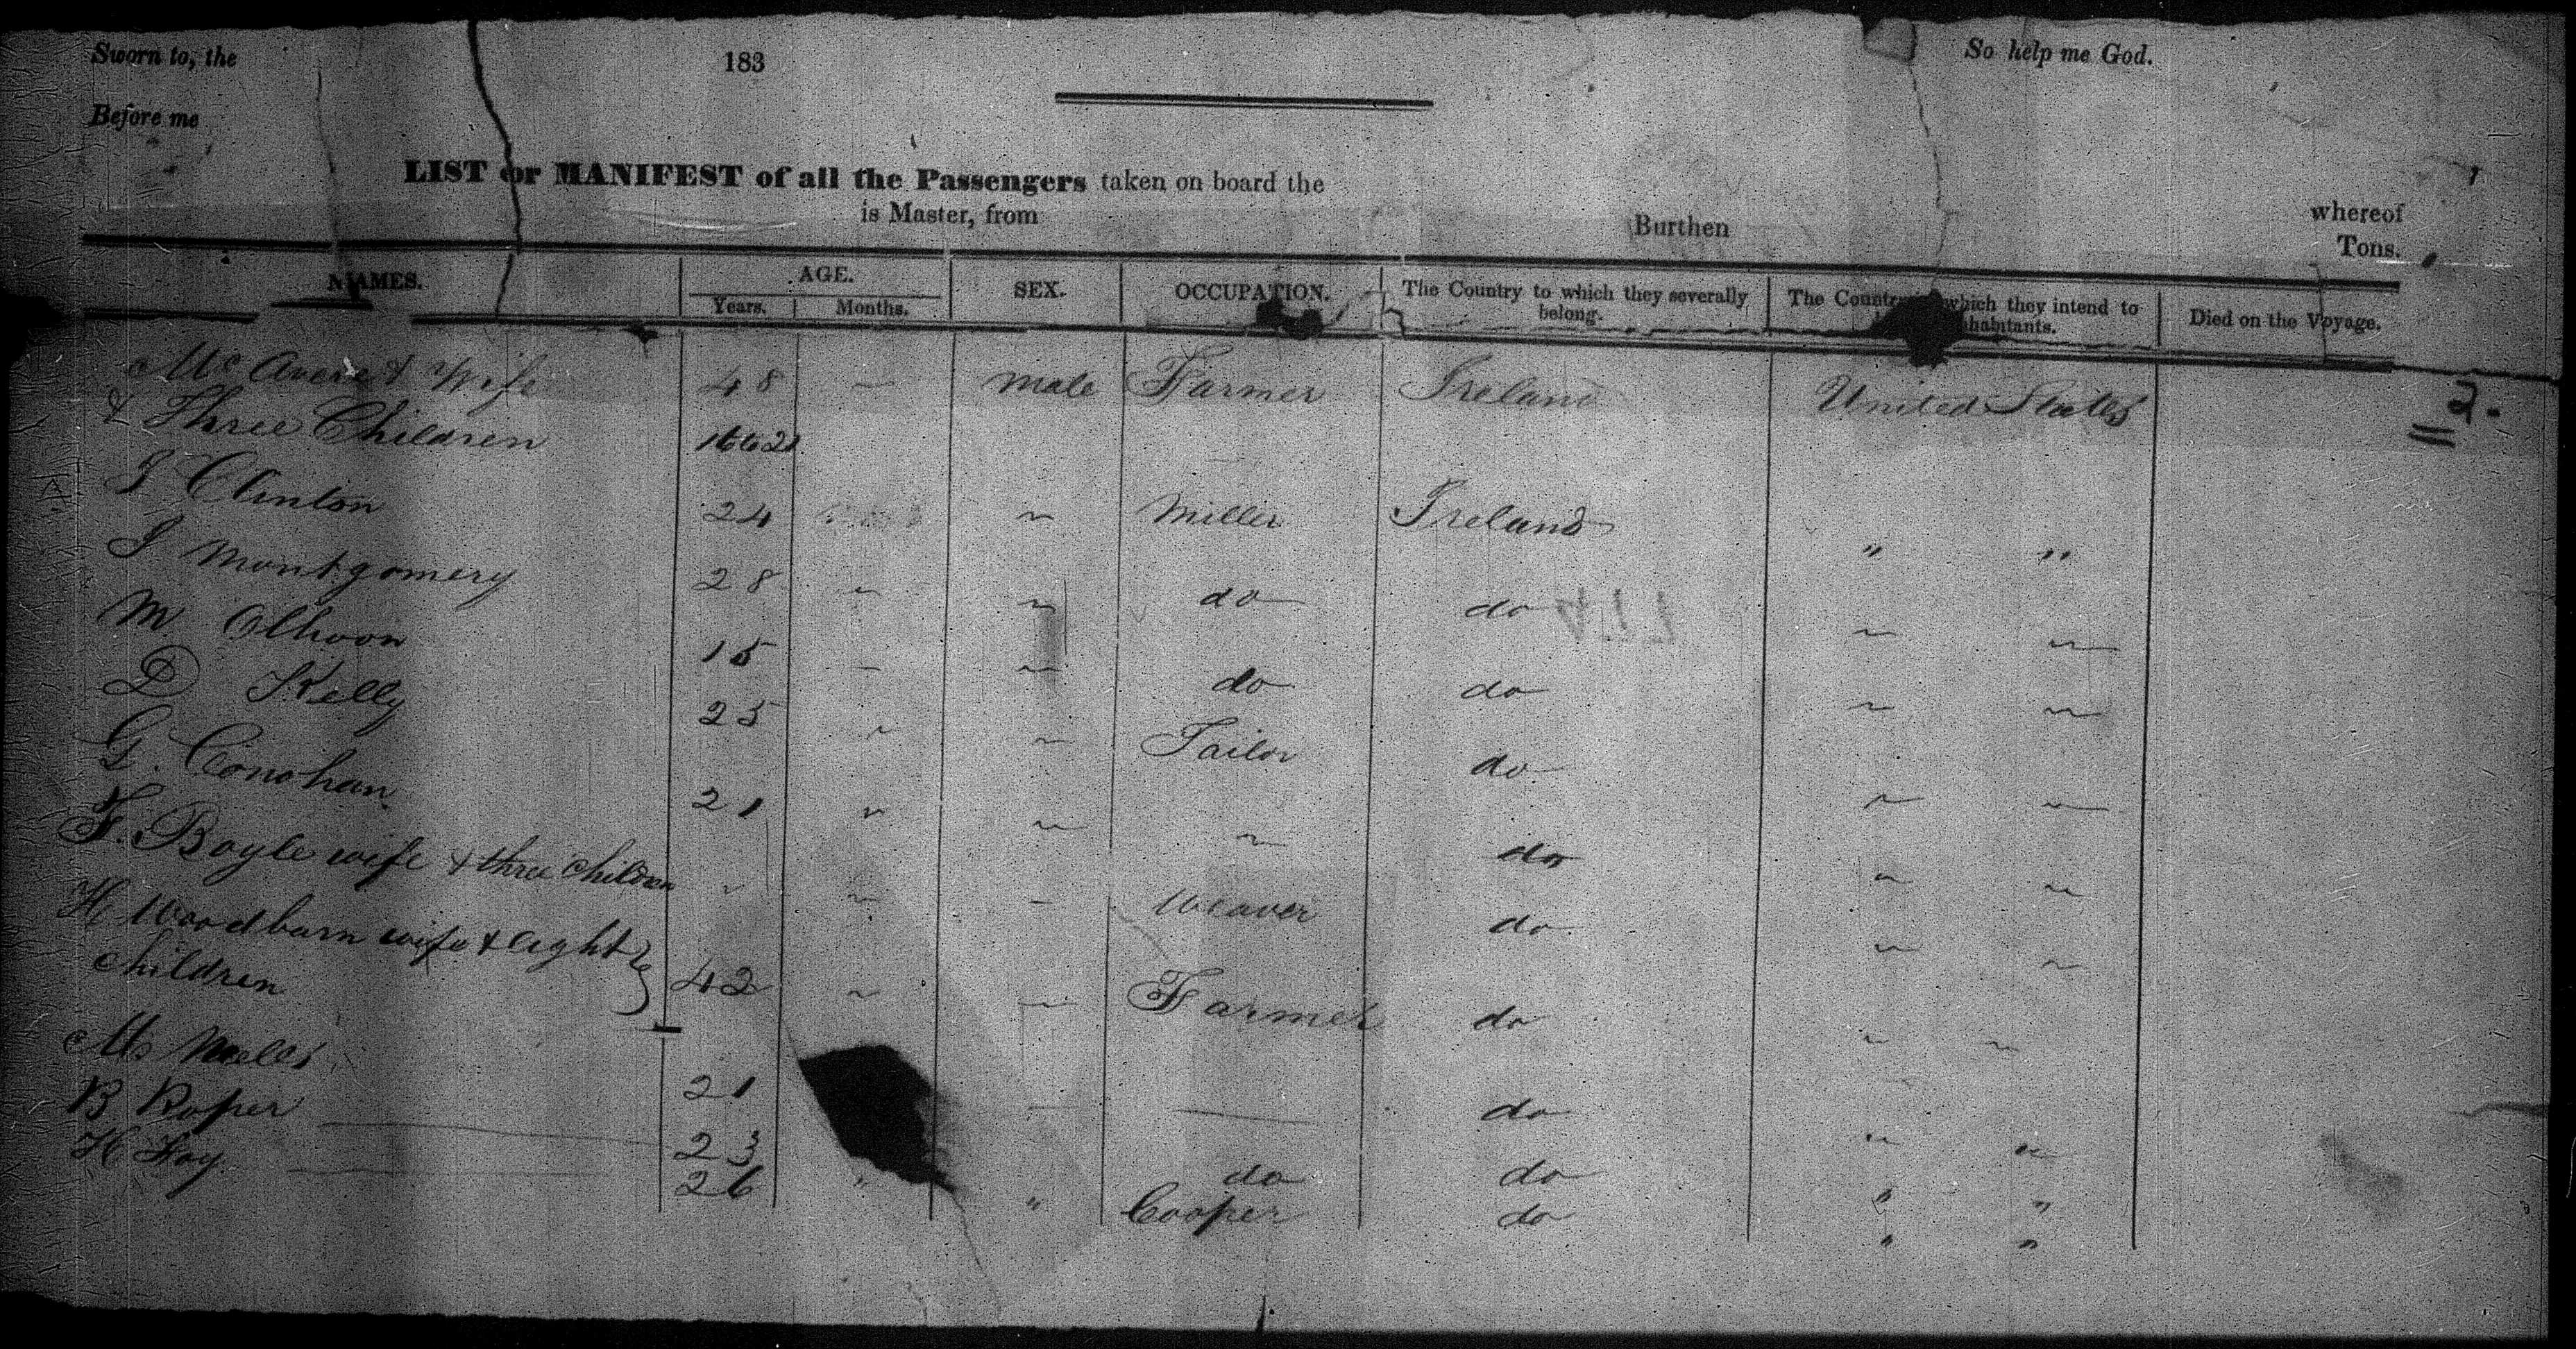 Sworn to, the 183 So help me God.
Before me
LIST or MANIFEST of all the Passengers taken on board the whereof
is Master, from Burthen Tons.
NAMES. AGE. SEX. OCCUPATION. The Country to which they severally belong. The Country which they intend to inhabitants. Died on the Voyage.
Years. Months.
& Wife 48 — male Farmer Ireland United States 2.
& Three Children
Clinton 24 " Miller Ireland " "
Montgomery 28 " " do do " "
M 15 — " do do " "
D Kelly 25 " " Tailor do " "
G. Conohan 21 " " " do " "
F. Boyle wife & three children " " - Weaver do " "
H Woodburn wife & eight
children 42 " — Farmer do " "
21 — — do " "
B Roper 23 do do " "
H 26 " " Cooper do " "